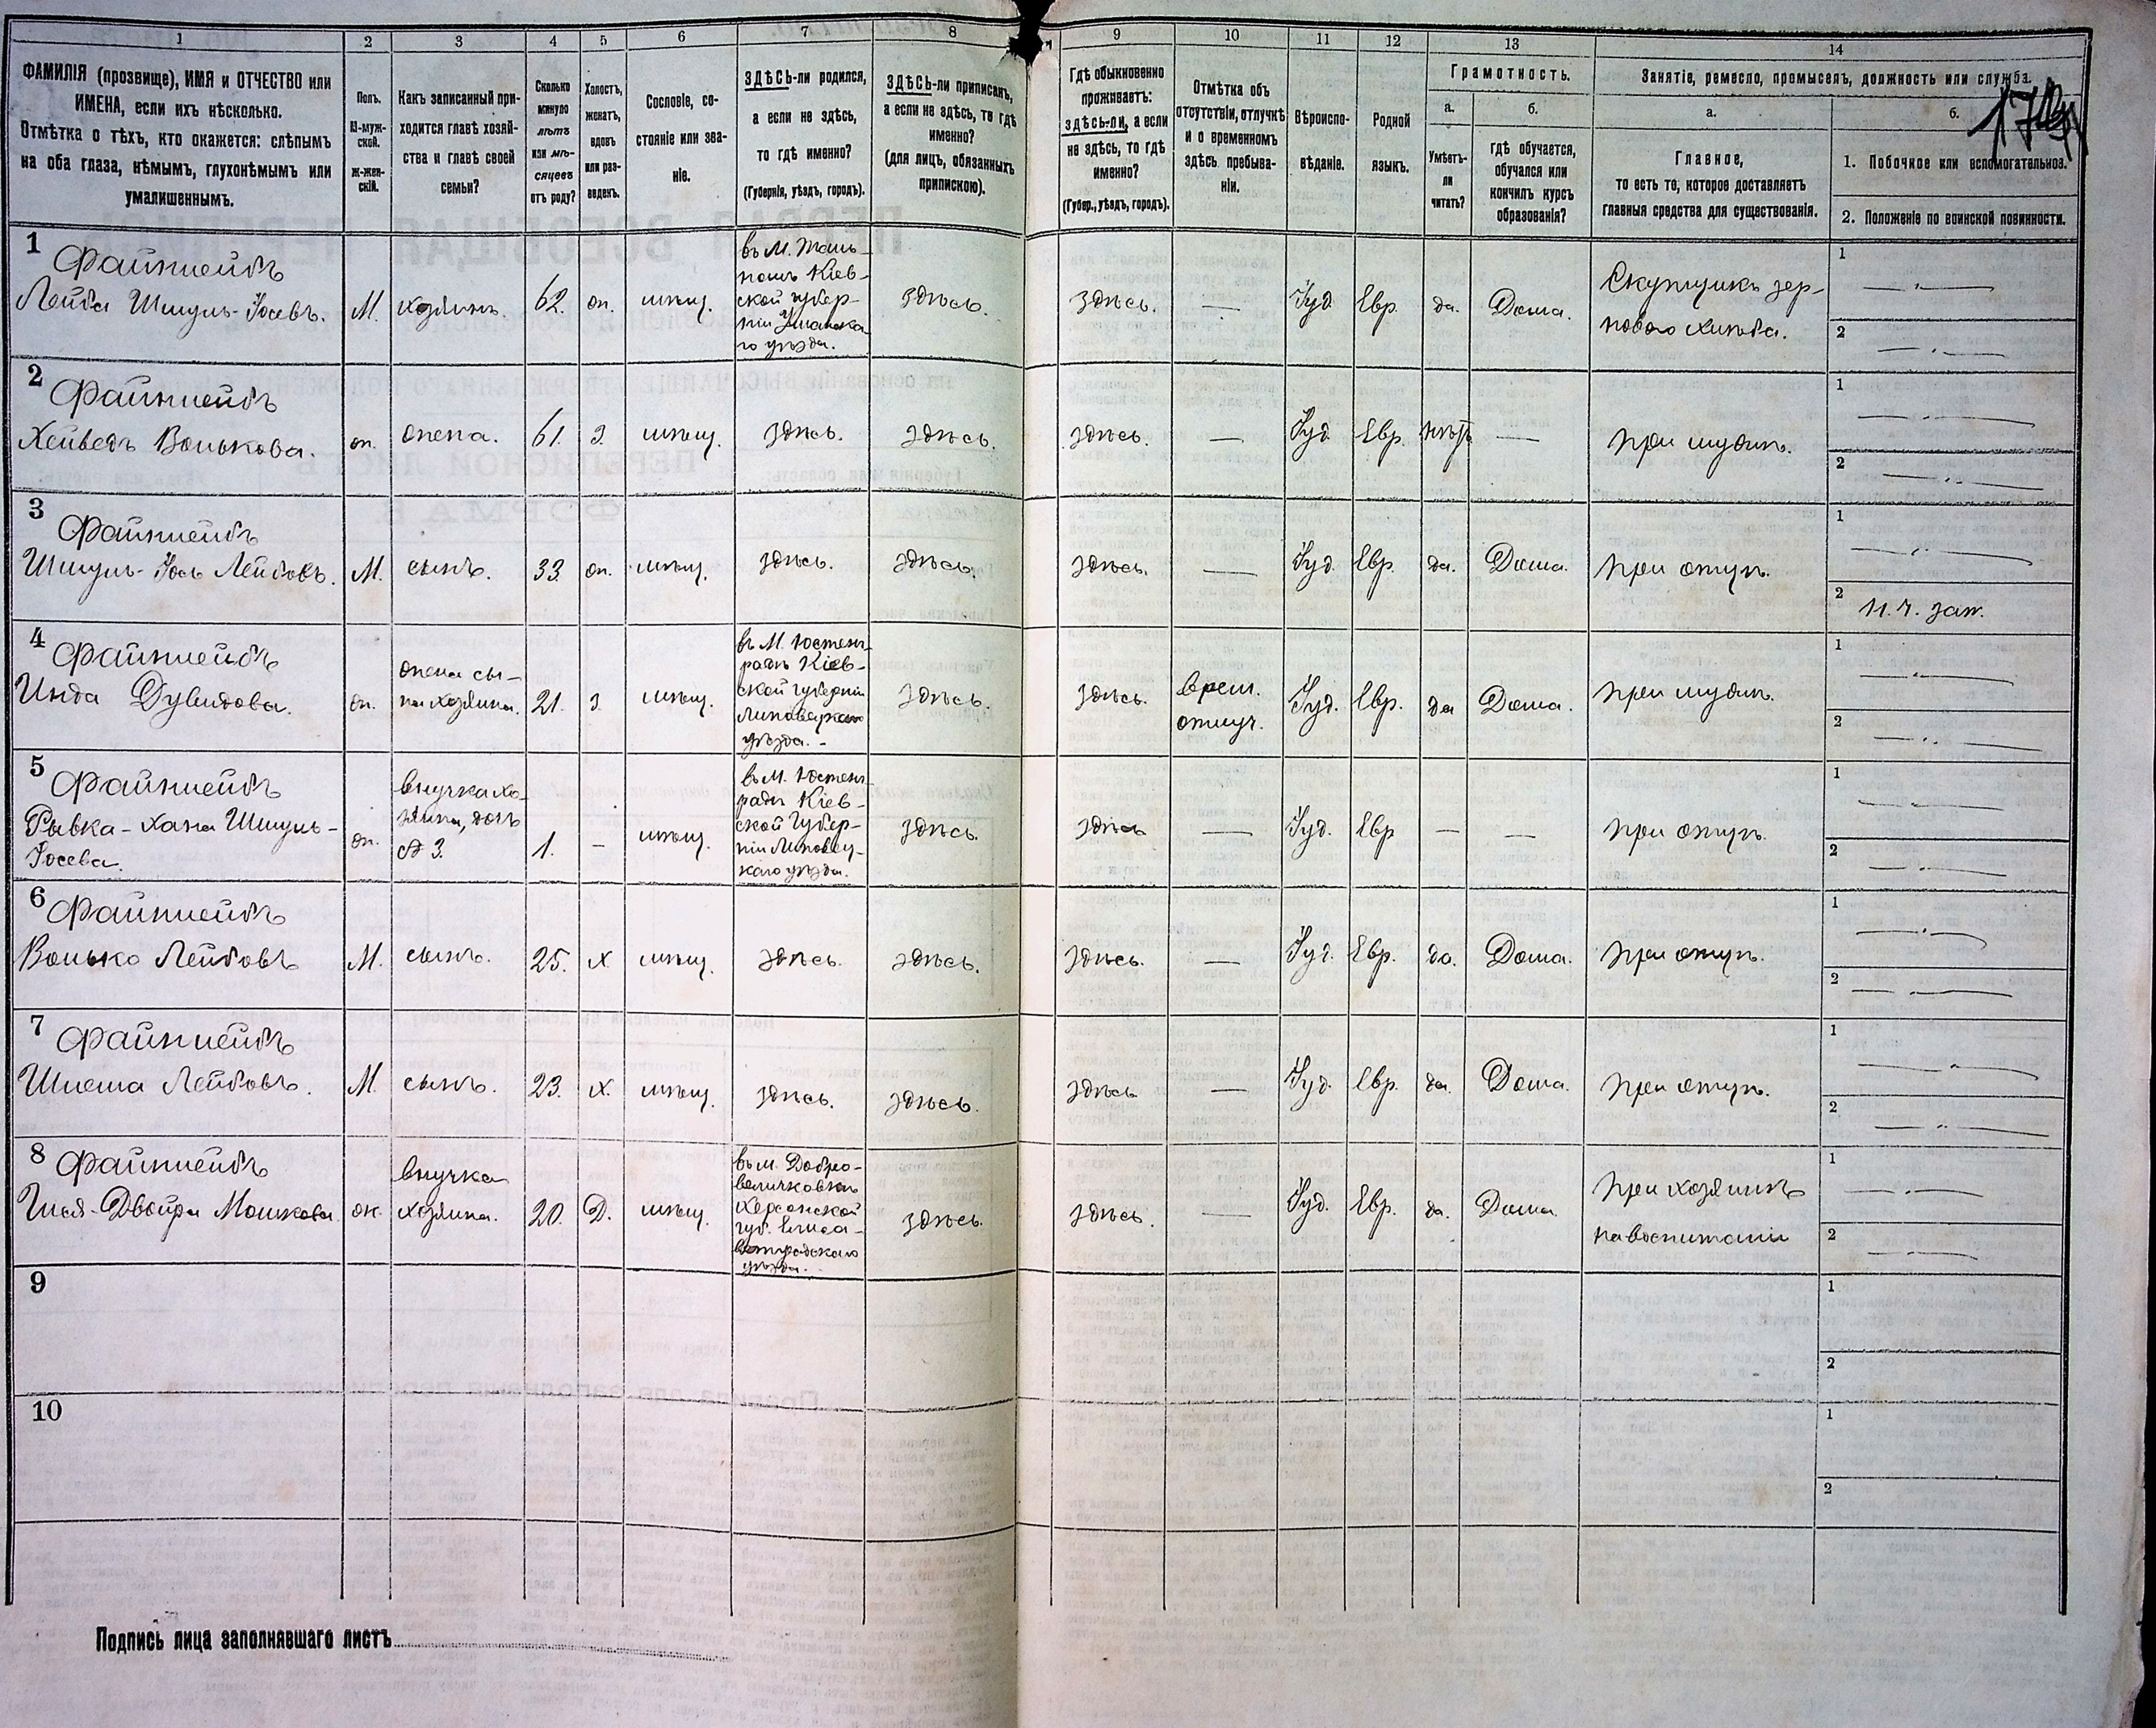 1
2
3
4
5
6
7
8
9
10
11
12
13
14
ФАМИЛІЯ (прозвище), ИМЯ и ОТЧЕСТВО или
ИМЕНА, если ихъ нѣсколько.
Отмѣтка о тѣхъ, кто окажется: слѣпымъ
на оба глаза, нѣмымъ, глухонѣмымъ или
умалишеннымъ.
Полъ.
М-муж-
ской.
Ж-жен-
скій.
Какъ записанный при-
ходится главѣ хозяй-
ства и главѣ своей
семьи?
Сколько
минуло
лѣтъ
или мѣ-
сяцевъ
отъ роду?
Холостъ,
женатъ,
вдовъ
или раз-
веденъ.
Сословіе, со-
стояніе или зва-
ніе.
ЗДѢСЬ-ли родился,
а если не здѣсь,
то гдѣ именно?
(Губернія, уѣздъ, городъ).
ЗДѢСЬ-ли приписанъ,
а если не здѣсь, то гдѣ
именно?
(для лицъ, обязанныхъ
припискою).
Гдѣ обыкновенно
проживаетъ:
здѣсь-ли, а если
не здѣсь, то гдѣ
именно?
(Губер., уѣздъ, городъ).
Отмѣтка объ
отсутствіи, отлучкѣ
и о временномъ
здѣсь пребыва-
ніи.
Вѣроиспо-
вѣданіе.
Родной
языкъ.
Грамотность.
а.
Умѣетъ-
ли
читать?
б.
гдѣ обучается,
обучался или
кончилъ курсъ
образованія?
Занятіе, ремесло, промыселъ, должность или служба.
а.
Главное,
то есть то, которое доставляетъ
главныя средства для существованія.
б.
1. Побочное или вспомогательное.
2. Положеніе по воинской повинности.
1
Файнлейбъ
Лейба Шмуль-Іосевъ.
М.
хозяинъ.
62.
ж.
мѣщ.
въ М.
Кіев-
ской губер-
ніи Уманска
го уѣзда.
здѣсь.
здѣсь.
—
Іуд.
Евр.
да.
Дома.
Скупщикъ зер-
нового хлѣба.
1
2
2
Файнлейбъ
Хейведъ Волькова.
ж.
жена.
61.
з.
мѣщ.
здѣсь.
здѣсь.
здѣсь.
—
Іуд.
Евр.
нѣтъ
—
при мужѣ.
1
2
3
Файнлейбъ
Шмуль-Іось Лейбовъ.
М.
сынъ.
33.
ж.
мѣщ.
здѣсь.
здѣсь.
здѣсь.
—
Іуд.
Евр.
да.
Дома.
при отцѣ.
1
2
н. ч. зап.
4
Файнлейбъ
Инда Дувидова.
ж.
жена сы-
на хозяина.
21.
з.
мѣщ.
въ М. Юстен-
радъ Кіев-
ской губерніи
Липовецкаго
уѣзда.
здѣсь.
здѣсь.
врем.
отлуч.
Іуд.
Евр.
да
Дома.
при мужѣ.
1
2
5
Файнлейбъ
Рывка-Хана Шмуль-
Іосева.
ж.
внучка хо-
зяина, дочь
№ 3.
1.
—
мѣщ.
въ М. Юстен-
радъ Кіев-
ской Губер-
ніи Липовец-
каго уѣзда.
здѣсь.
здѣсь
—
Іуд.
Евр
—
—
при отцѣ.
1
2
6
Файнлейбъ
Волько Лейбовъ
М.
сынъ.
25.
х.
мѣщ.
здѣсь.
здѣсь.
здѣсь.
—
Іуд.
Евр.
да.
Дома.
при отцѣ.
1
2
7
Файнлейбъ
Шлема Лейбовъ.
М.
сынъ.
23.
х.
мѣщ.
здѣсь.
здѣсь.
здѣсь
—
Іуд.
Евр.
да.
Дома.
при отцѣ.
1
2
8
Файнлейбъ
Гися-Двойра Мошкова.
ж.
внучка
хозяина.
20.
Д.
мѣщ.
въ м. Добро-
величковка
Херсонской
губ. Елиса-
ветградскаго
уѣзда.
здѣсь.
здѣсь.
—
Іуд.
Евр.
да.
Дома.
при хозяинѣ
на воспитаніи
1
2
9
1
2
10
1
2
Подпись лица заполнявшаго листъ